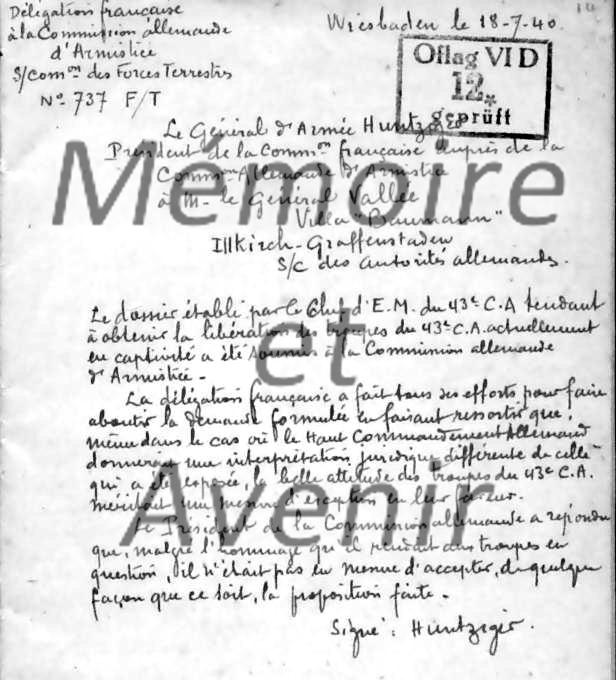 Délégation française
à la Commission allemande
d'Armistice
S/Comon des Forces Terrestres
No 737 F/T
Wiesbaden le 18-7-40.
Oflag VI D
12*
geprüft
Le Général d'Armée Huntziger
President de la Common française auprès de la
Common Allemande d'Armistice
à Mr le Général Vallée
Villa "Baumann"
Illkirch-Graffenstaden
S/c des autorités allemandes.
Le dossier établi par le Chef d'E.M. du 43e C.A tendant
à obtenir la libération des troupes du 43e C.A. actuellement
en captivité a été soumis à la Commission allemande
d'Armistice -
La délégation française a fait tous ses efforts pour faire
aboutir la demande formulée en faisant ressortir que,
même dans le cas où le Haut Commandement Allemand
donnerait une interprétation juridique différente de celle
qui a été exposée, la belle attitude des troupes du 43e C.A.
méritait une mesure d'exception en leur faveur.
Le Président de la Commission allemande a répondu
que, malgré l'hommage qu'il rendait aux troupes en
question, il n'était pas en mesure d'accepter, de quelque
façon que ce soit, la proposition faite -
Signé : Huntziger.
Mémoire
et
Avenir